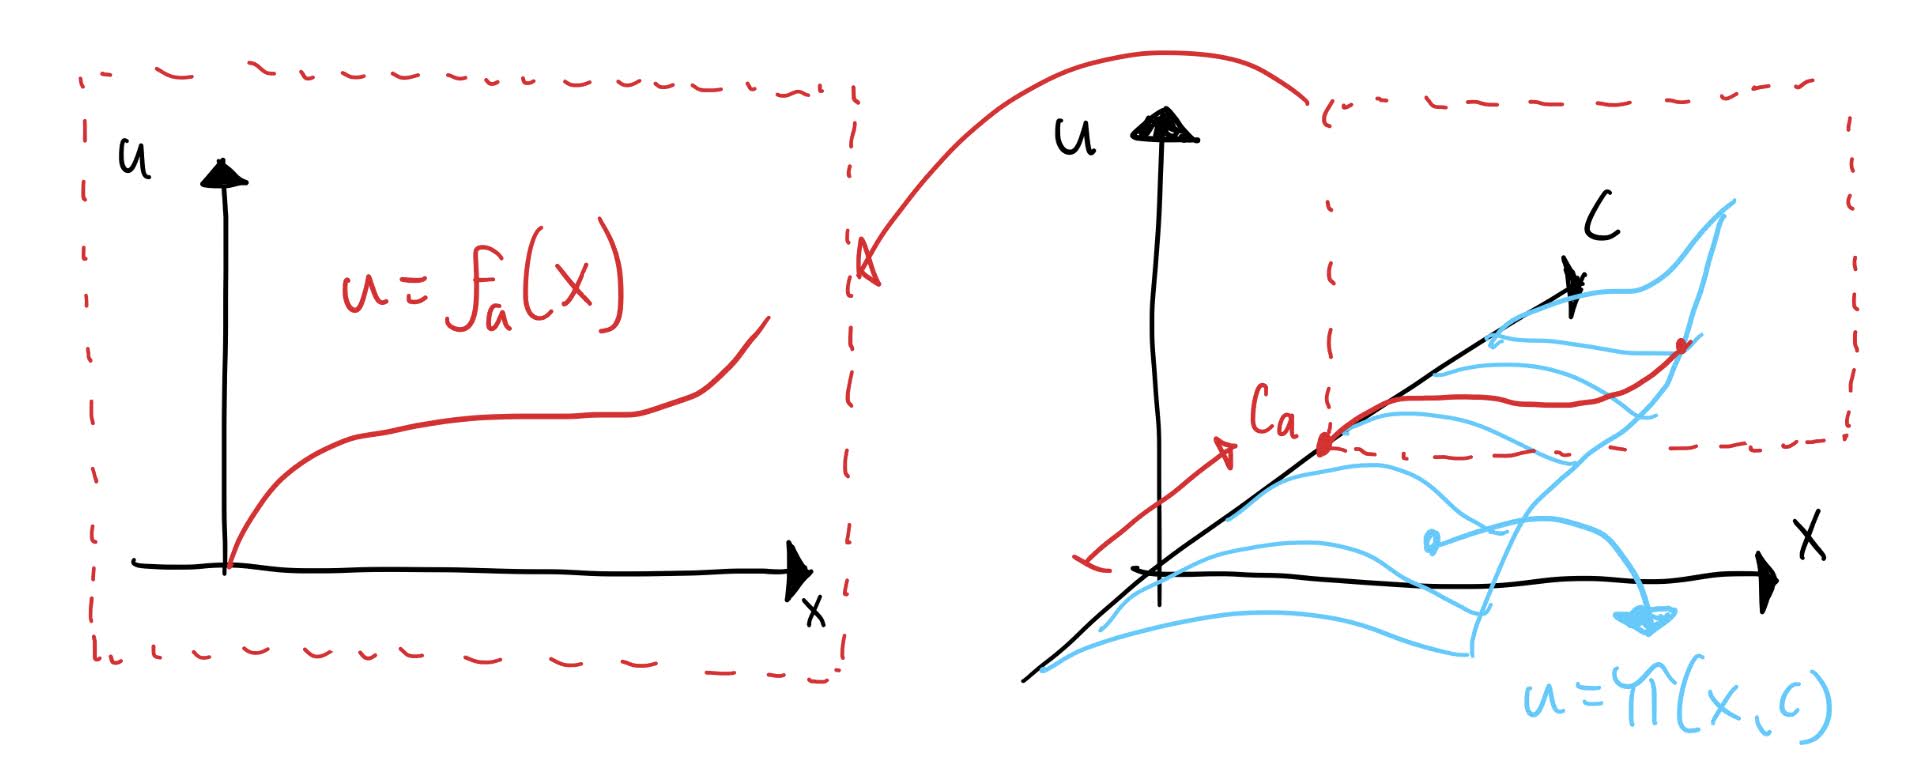 u
u = fₐ(x)
x
u
c
cₐ
x
u = π(x, c)